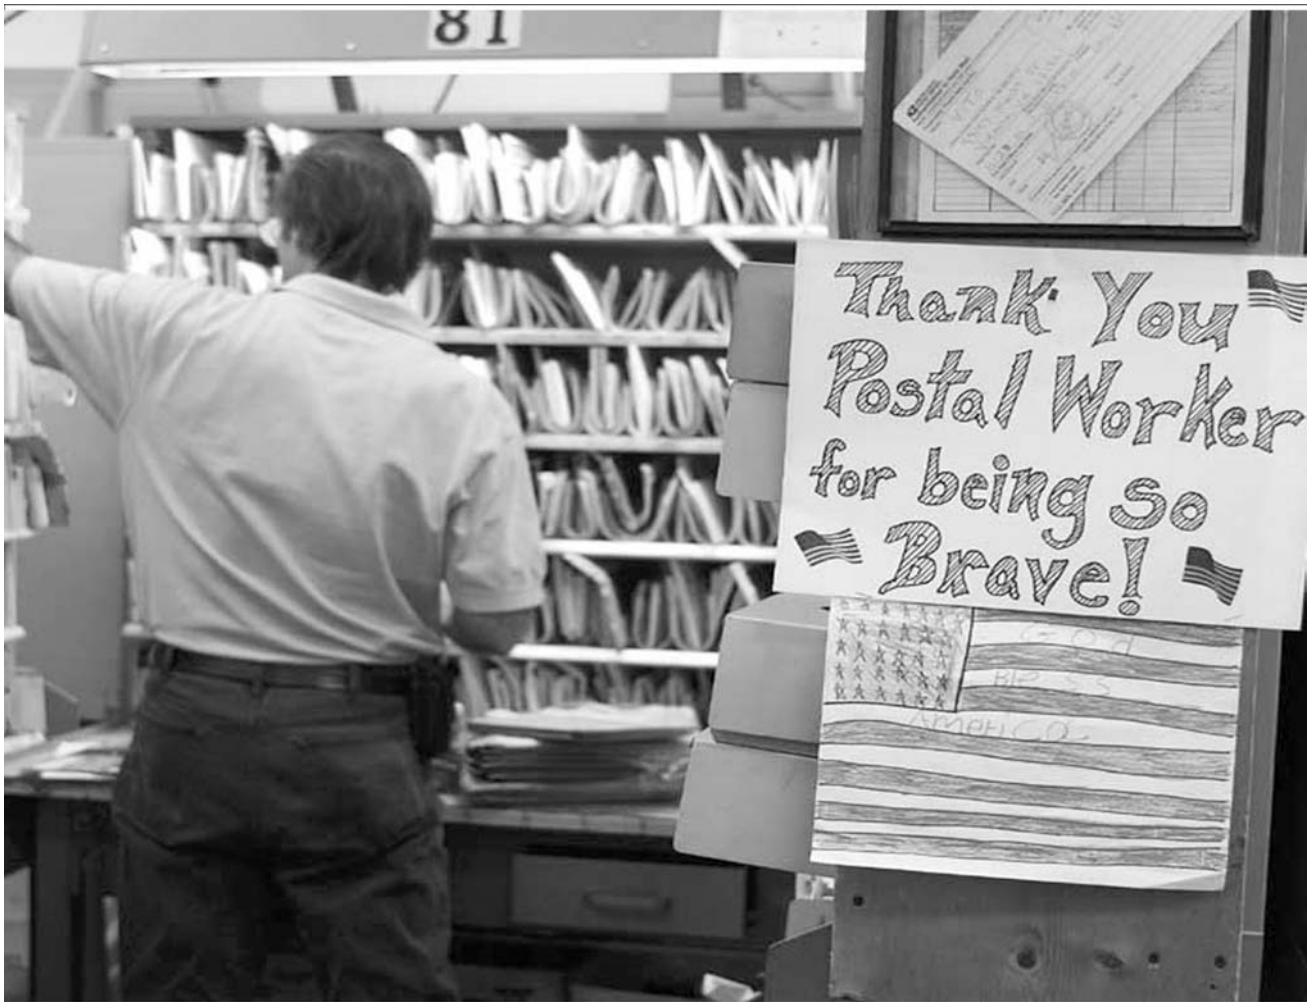 81
Thank You
Postal Worker
for being so
Brave!
God
Bless
America